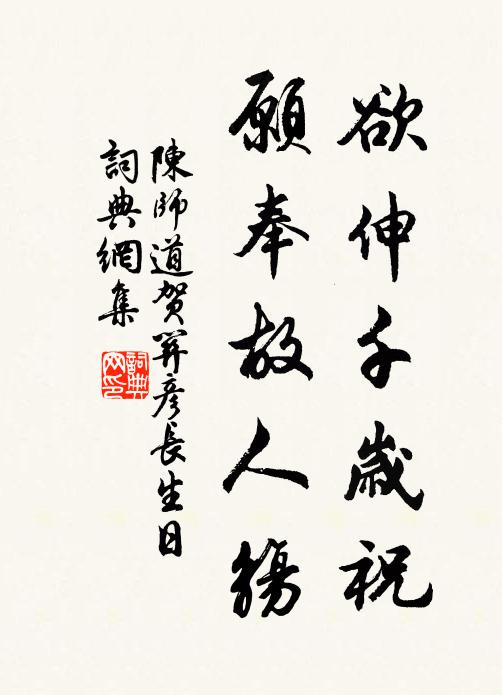 欲伸千歲祝
願奉故人觴
陳師道賀關彥長生日
詞典網集
詞典网印